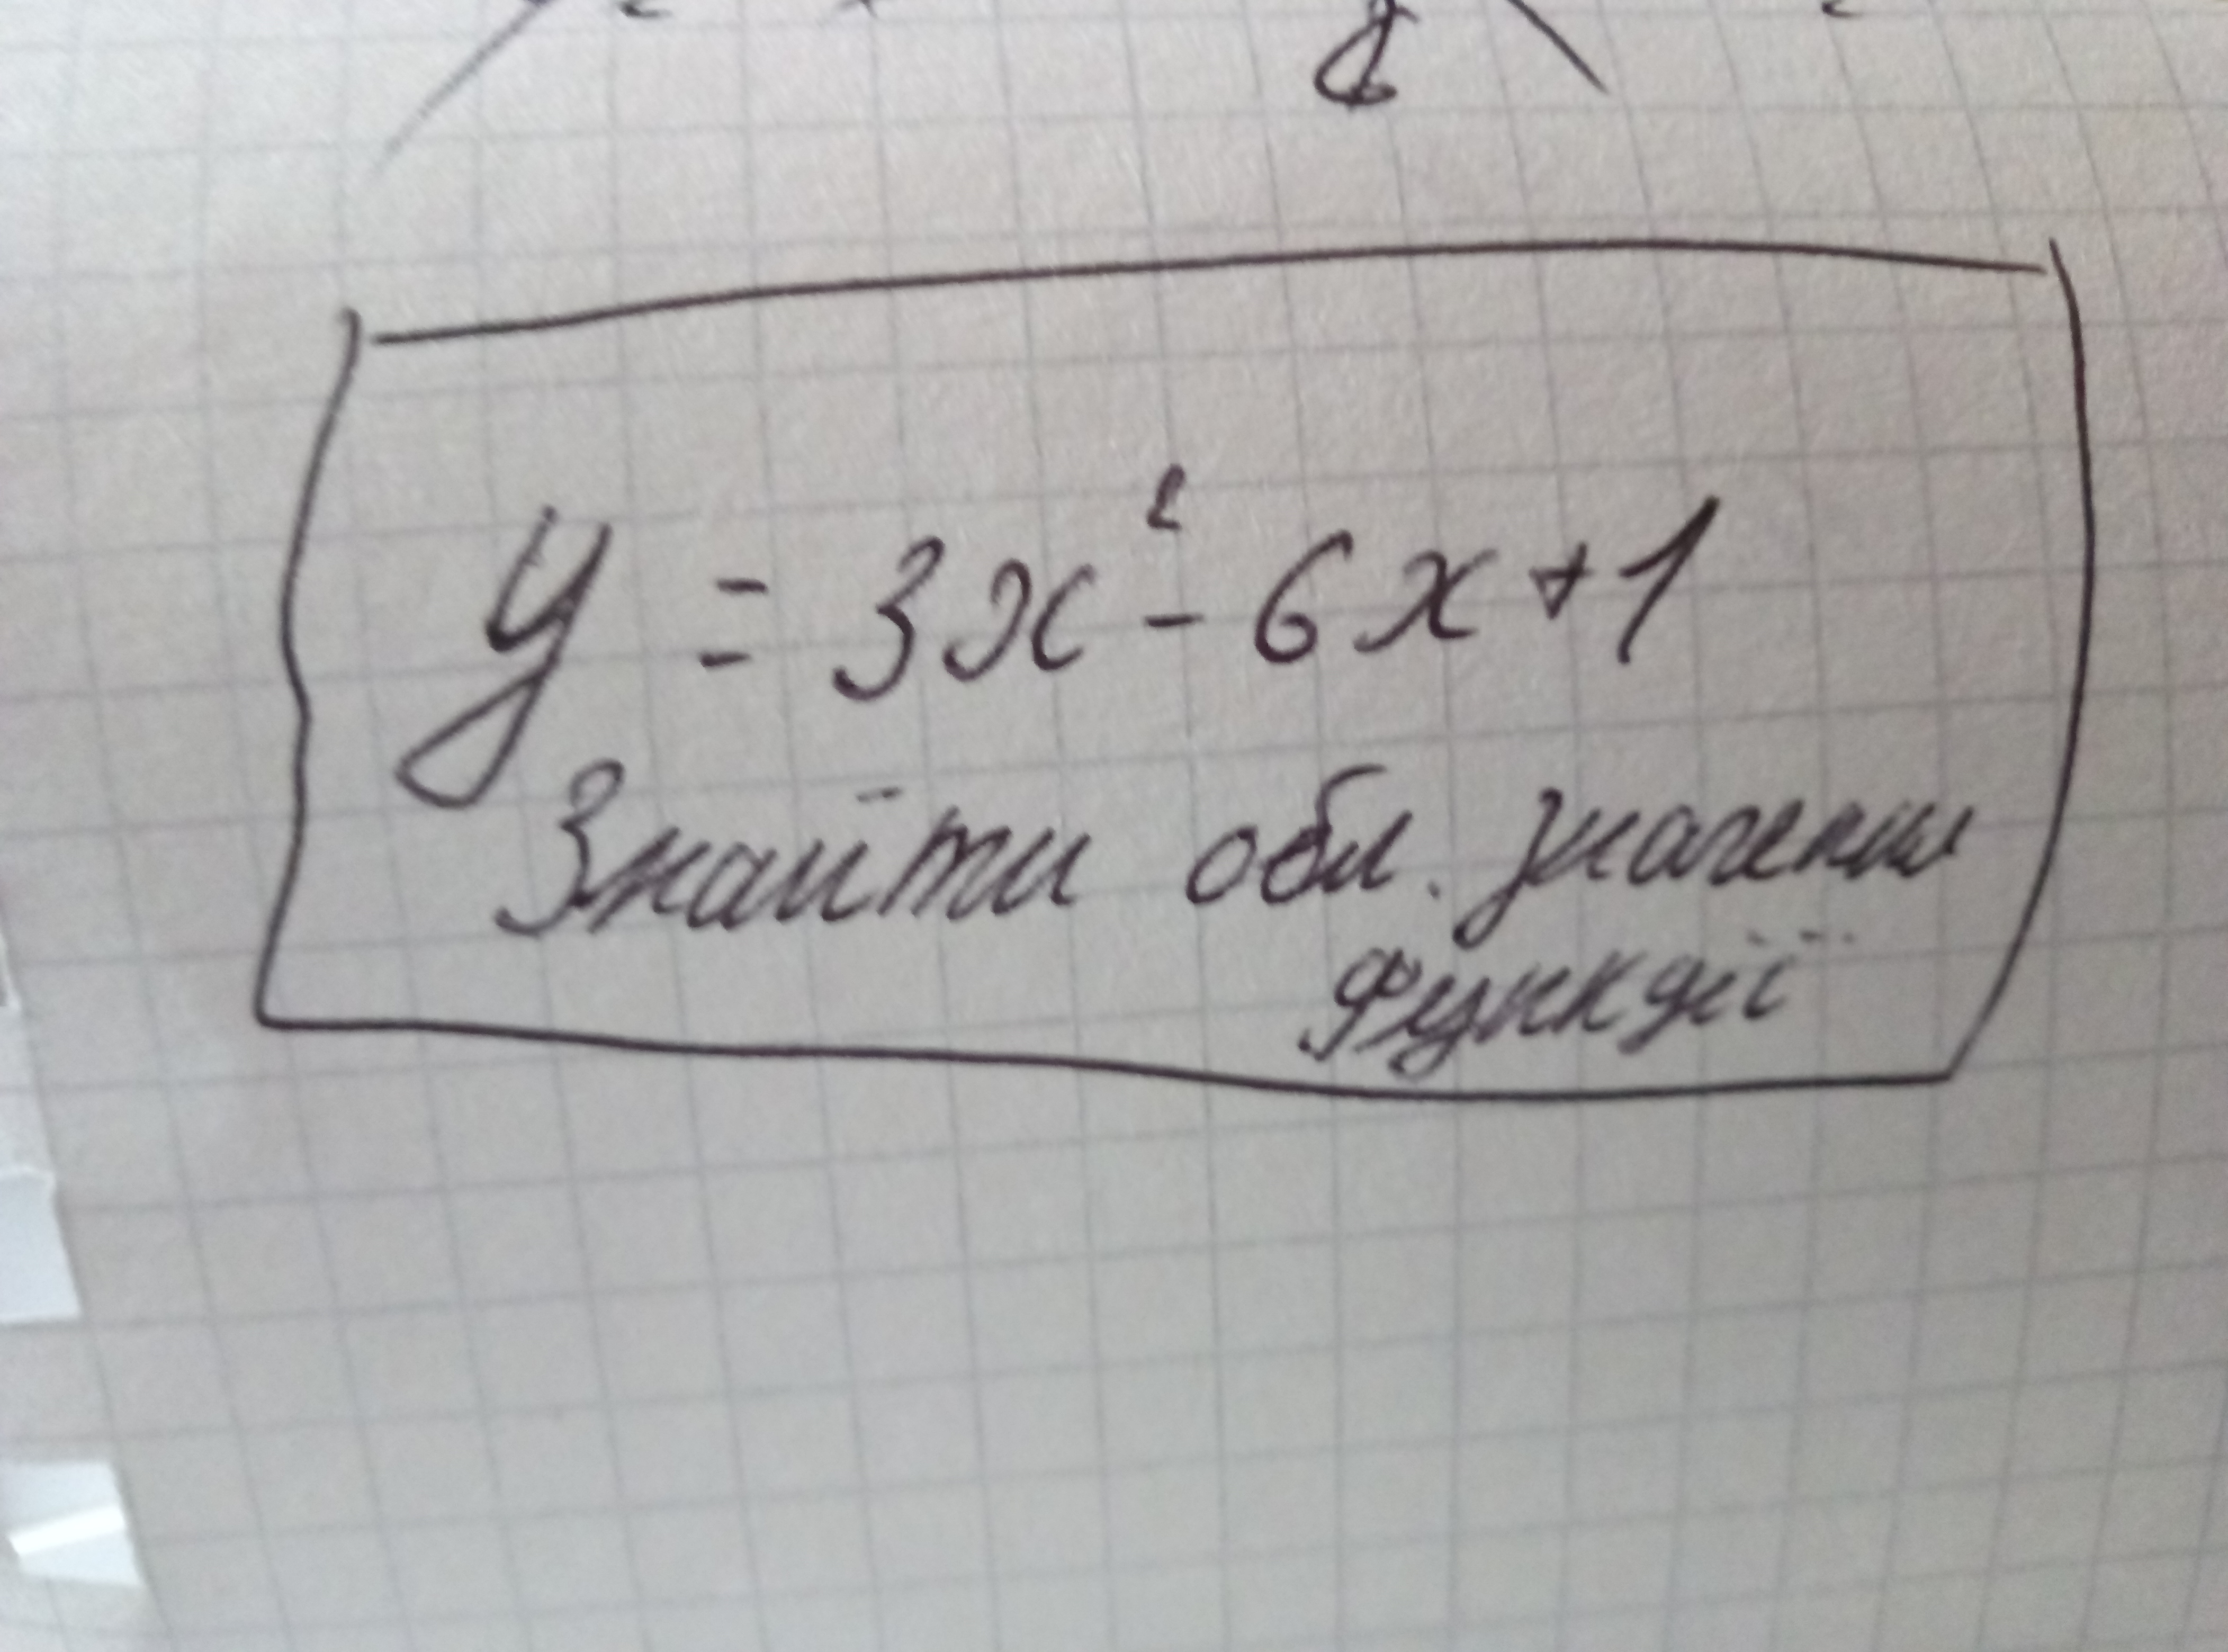 y = 3x² - 6x + 1
Знайти обл. значення
функції